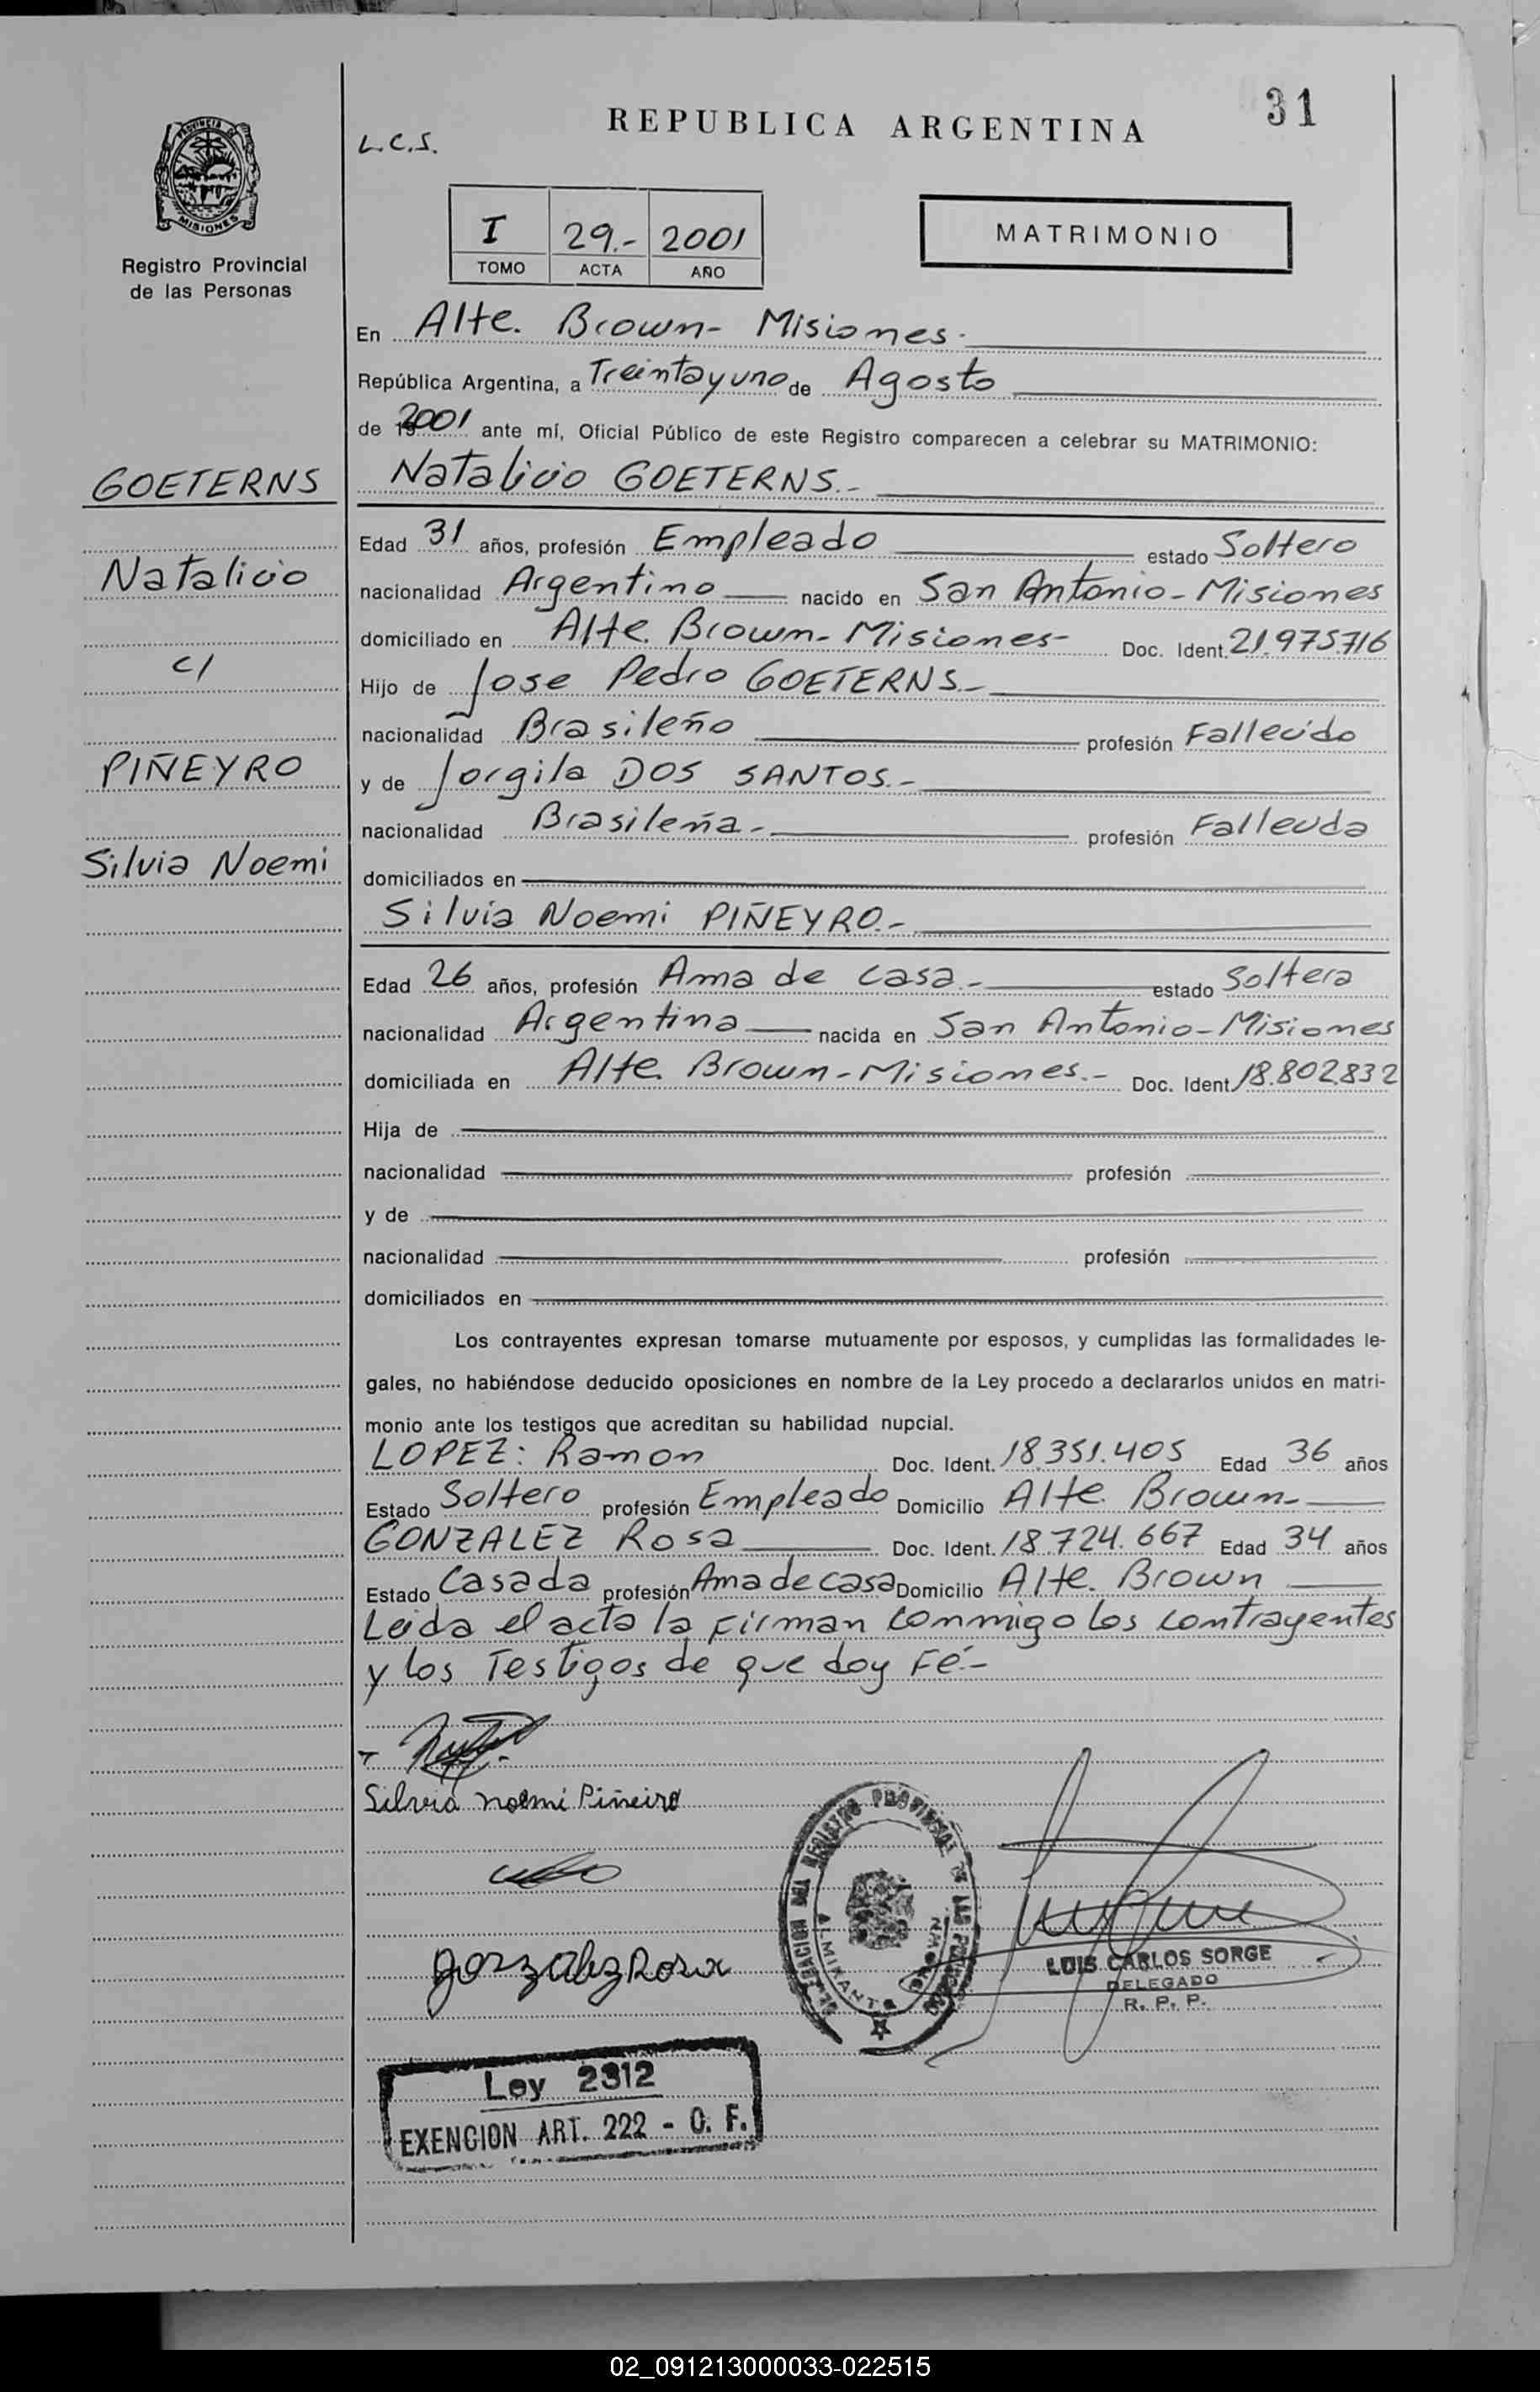 31
REPUBLICA ARGENTINA
L.C.S.
PROVINCIA DE MISIONES
Registro Provincial
de las Personas
I 29.- 2001
TOMO ACTA AÑO
MATRIMONIO
En Alte. Brown- Misiones.
República Argentina, a Treintayuno de Agosto
de 2001 ante mí, Oficial Público de este Registro comparecen a celebrar su MATRIMONIO:
GOETERNS
Natalicio
c/
PIÑEYRO
Silvia Noemi
Natalicio GOETERNS.-
Edad 31 años, profesión Empleado estado Soltero
nacionalidad Argentino nacido en San Antonio-Misiones
domiciliado en Alte. Brown-Misiones- Doc. Ident. 21.975.716
Hijo de Jose Pedro GOETERNS.-
nacionalidad Brasileño profesión Fallecido
y de Jorgila DOS SANTOS.-
nacionalidad Brasileña.- profesión Fallecida
domiciliados en
Silvia Noemi PIÑEYRO.-
Edad 26 años, profesión Ama de casa.- estado Soltera
nacionalidad Argentina nacida en San Antonio-Misiones
domiciliada en Alte. Brown-Misiones.- Doc. Ident. 18.802.832
Hija de
nacionalidad profesión
y de
nacionalidad profesión
domiciliados en
Los contrayentes expresan tomarse mutuamente por esposos, y cumplidas las formalidades le-
gales, no habiéndose deducido oposiciones en nombre de la Ley procedo a declararlos unidos en matri-
monio ante los testigos que acreditan su habilidad nupcial.
LOPEZ: Ramon Doc. Ident. 18.351.405 Edad 36 años
Estado Soltero profesión Empleado Domicilio Alte. Brown-
GONZALEZ Rosa Doc. Ident. 18.724.667 Edad 34 años
Estado Casada profesión Ama de casa Domicilio Alte. Brown
Leida el acta la firman conmigo los contrayentes
y los Testigos de que doy Fé.-
Silvia noemi Piñeiro
gonzalez Rosa
REGISTRO PROVINCIAL DE LAS PERSONAS
ALMIRANTE BROWN
LUIS CARLOS SORGE
DELEGADO
R. P. P.
Ley 2312
EXENCION ART. 222 - O. F.
02_091213000033-022515